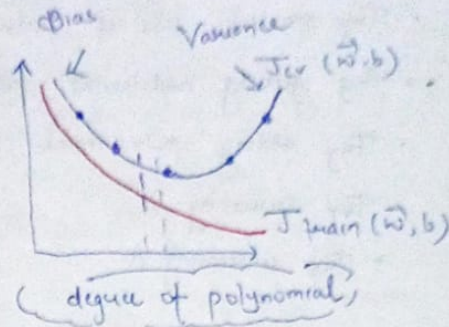 Bias
Variance
J_cv (w⃗, b)
J train (w⃗, b)
( degree of polynomial )